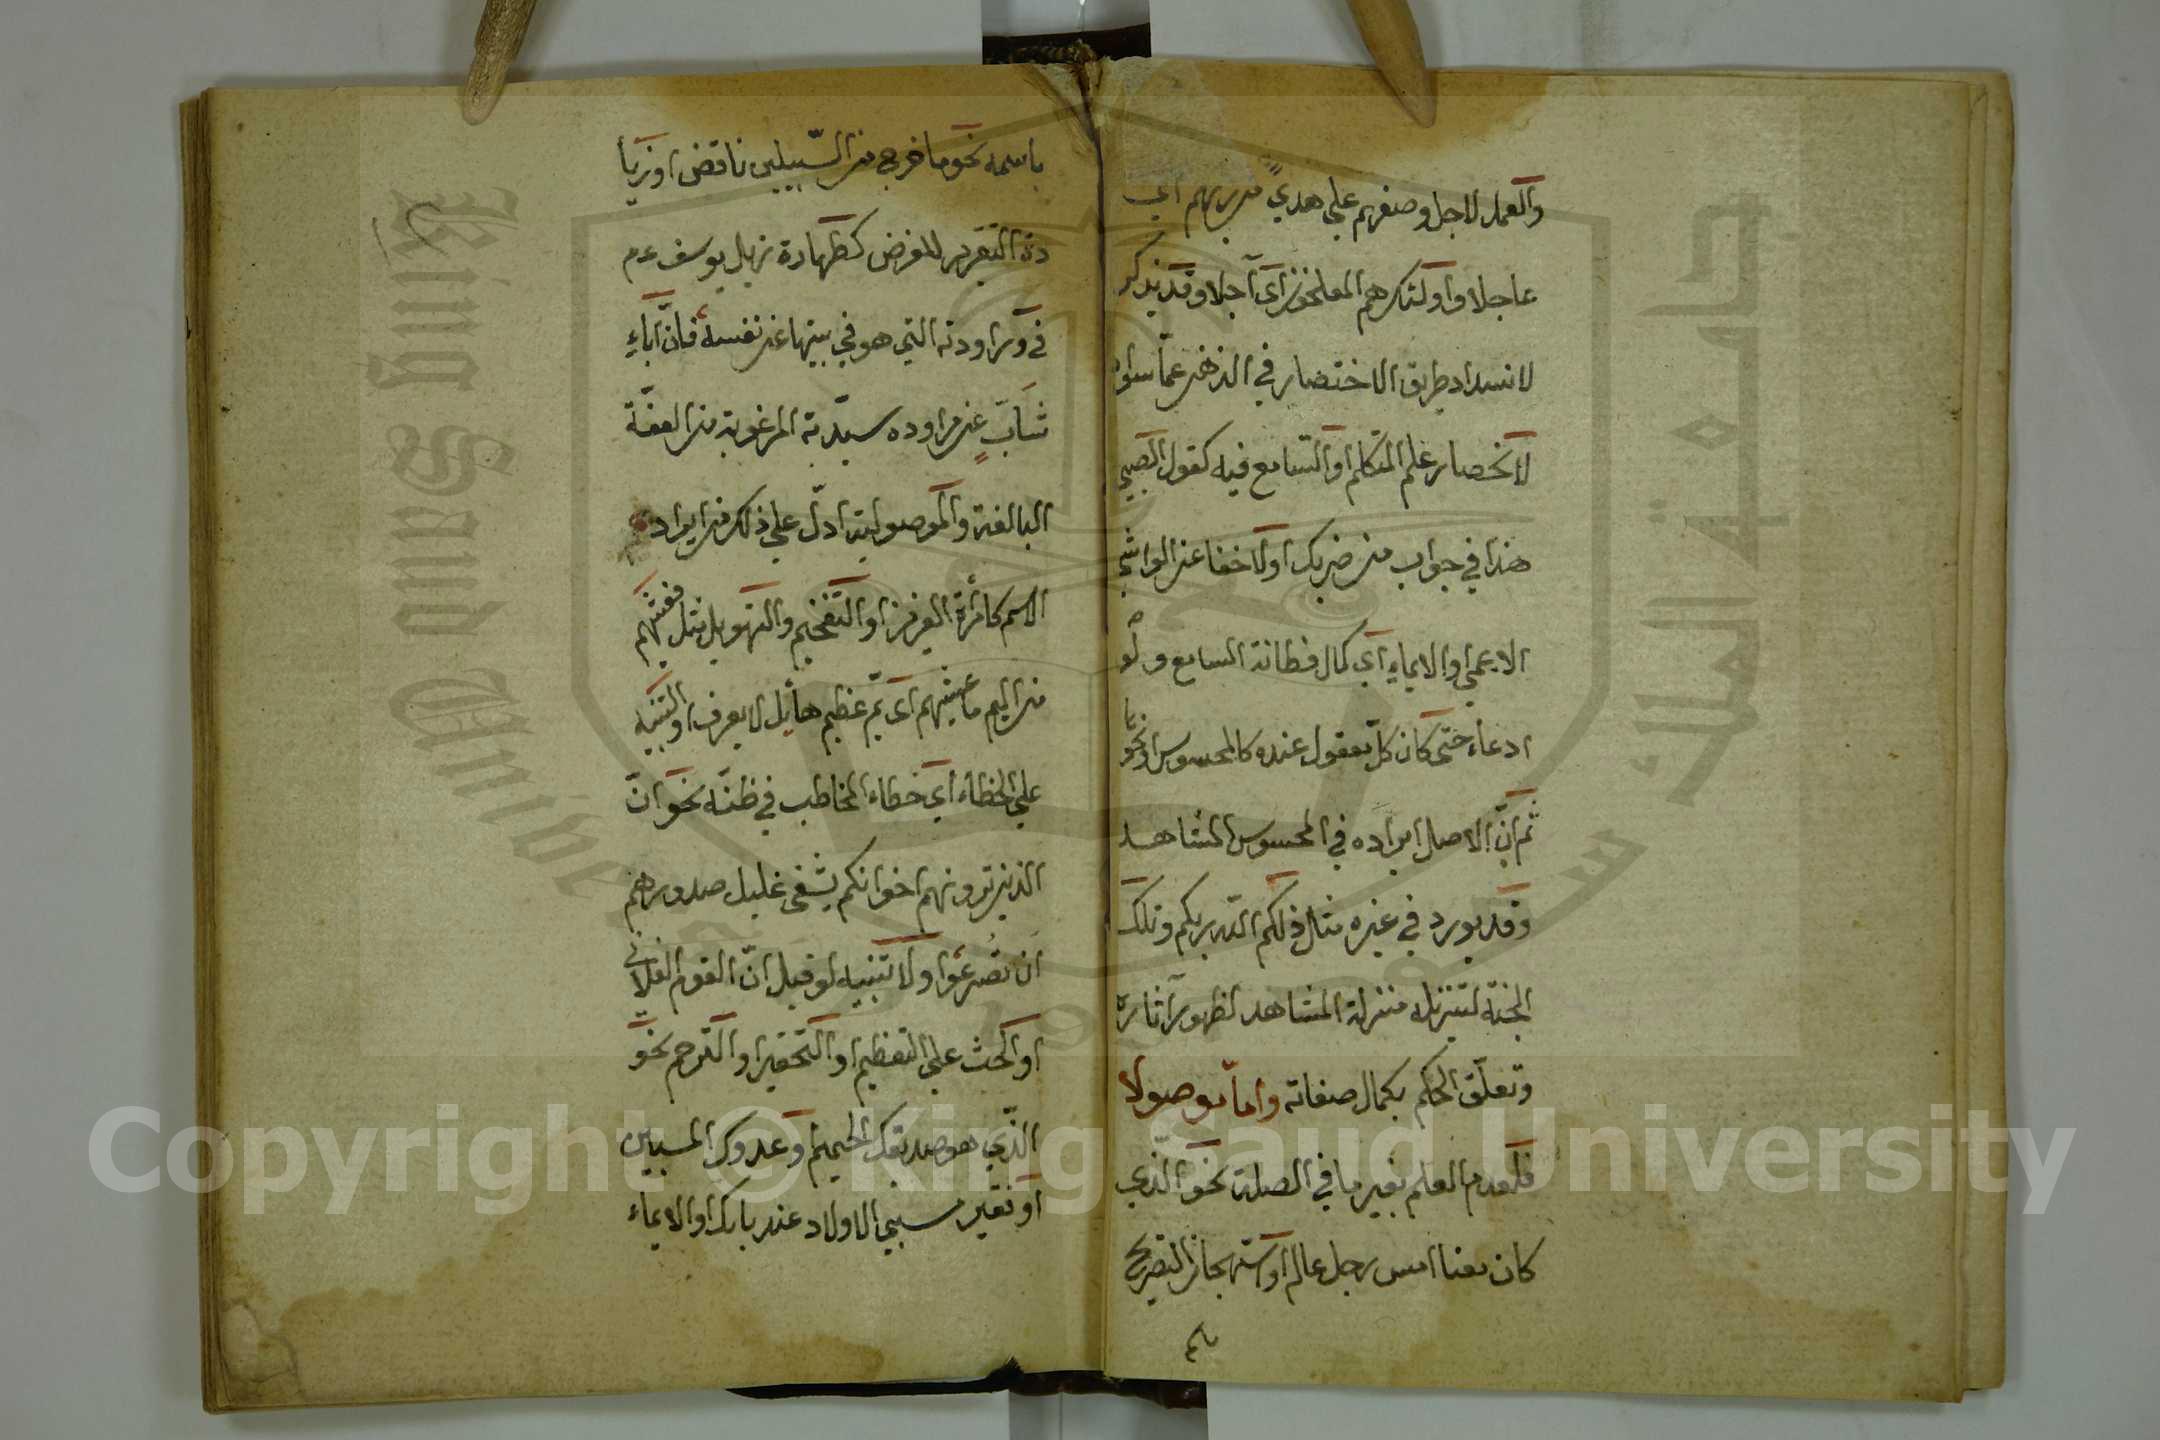 والعمل لاجل وصفهم على هدي من ربهم اي
عاجلا واولئك هم المفلحون اى آجلا وقد يذكر
لانسداد طريق الاختصار في الذهن عما سواه
لانحصار علم المتكلم او السامع فيه كقول الصبي
هذا في جواب من ضربك اولاخفا عن الواشي
الاعمي والايماء اى كمال فطانة السامع ولو
ادعاء حتى كان كل معقول عنده كالمحسوس او نحوها
ثم ان الاصل ايراده في المحسوس المشاهد
وقد يورد في غيره مثال ذلكم الله ربكم وتلك
الجنة لتنزيله منزلة المشاهد لظهور آثاره
وتعلق الحكم بكمال صفاته واما موصولا
فلعدم العلم بغير ما في الصلة نحو الذي
كان معنا امس رجل عالم او استهجان التصريح
باسمه
باسمه نحو ما خرج من السبيلين ناقض او زيا
دة التقرير للغرض كطهارة ذيل يوسف عم
في وراودته التي هو في بيتها عن نفسه فان اباء
شاب عن مراوده سيدته المرغوبة من العفة
البالغة والموصولية ادل على ذلك من ايراد
الاسم كامرأة العزيز او التفخيم والتهويل مثل فغشيهم
من اليم ما غشيهم اى يم عظيم هائل لا يعرف او التنبيه
على الخطاء اى خطاء المخاطب في ظنه نحو ان
الذين ترونهم اخوانكم يشفى غليل صدورهم
ان تصرعوا ولا تنبيه لو قيل ان القوم الفلاني
او الحث على التعظيم او التحقير او الترحم نحو
الذي هو صديقك الحميم او عدوك المبين
او فقير مسبي الاولاد عند بابك او الايماء
جامعة الملك سعود
King Saud University
1957
Copyright © King Saud University